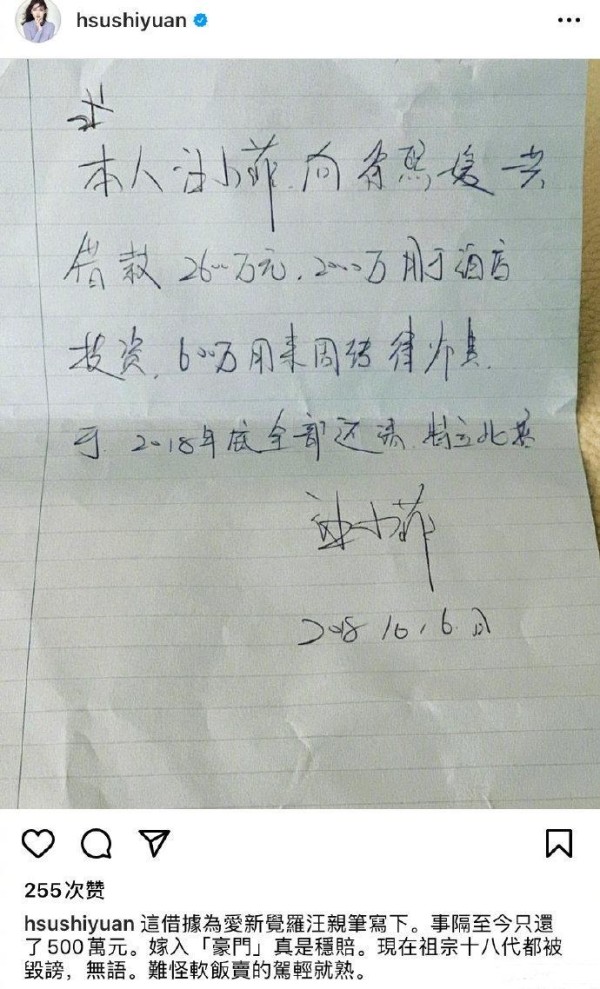 hsushiyuan
本人汪小菲.向徐熙媛共
借款2600万元.2000万用于酒店
投资.600万用来周转律师费.
于2018年底全部还清.特立此据
汪小菲
2018.10.6.
255次赞
hsushiyuan 這借據為愛新覺羅汪親筆寫下。事隔至今只還
了500萬元。嫁入「豪門」真是穩賠。現在祖宗十八代都被
毀謗，無語。難怪軟飯賣的駕輕就熟。